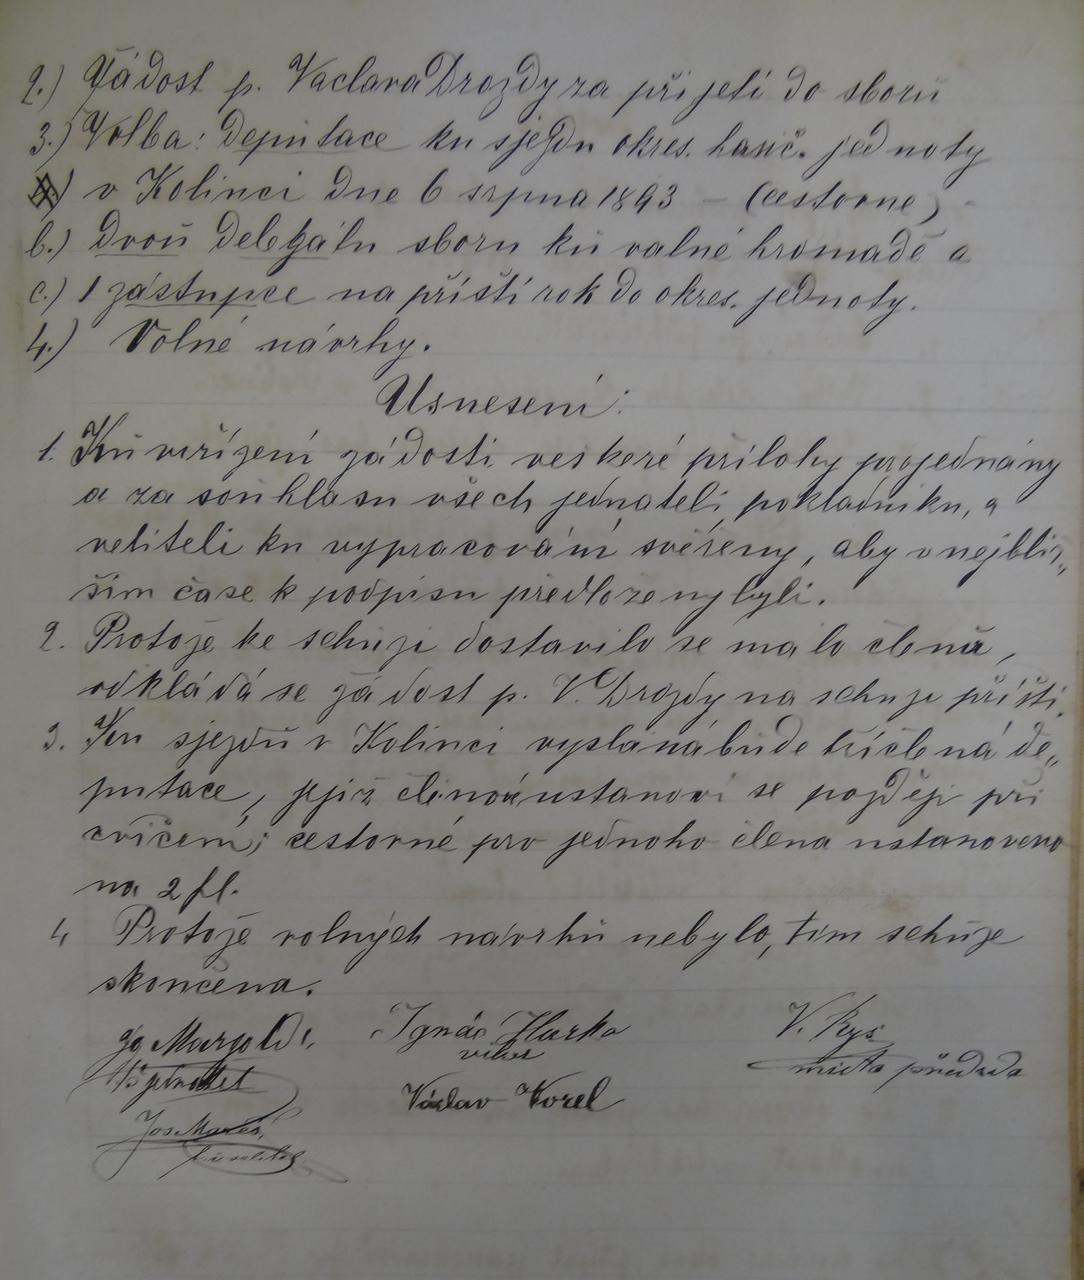 2.) Žádost p. Václava Drozdy za při jetí do sborů
3.) Volba: depu tace ku sjezdu okres. hasič. jednoty
v Kolinci dne 6 srpna 1893 – (cestovne)
b.) dvoů delegátu sboru ků valné hromadě a
c.) 1 zástupce na příští rok do okres. jednoty.
4.) Volné návrhy.
Usnesení:
1. Ků vířízení žádosti veškeré přílohy projednány
a za souhlasu všech jednateli, pokladníku, a
veliteli ku vypracování svěřeny, aby v nejbliž„
ším čase k podpisu předlože ny byli.
2. Protože ke schůzi dostavilo se málo členů,
odkládá se žádost p. V. Drozdy na schuzi příští.
3. Ku sjezdů v Kolinci vyslána bude tříčlená de„
putace, jejiž členové ustanoví se později při
cvičení; cestovné pro jednoho člena ustanoveno
na 2 fl.
4, Protože volných návrhů nebylo, tím schůze
skončena.
Ignác Hurka V. Rys
místo předseda
jednatel
Václav Korel
Jos Mareš,